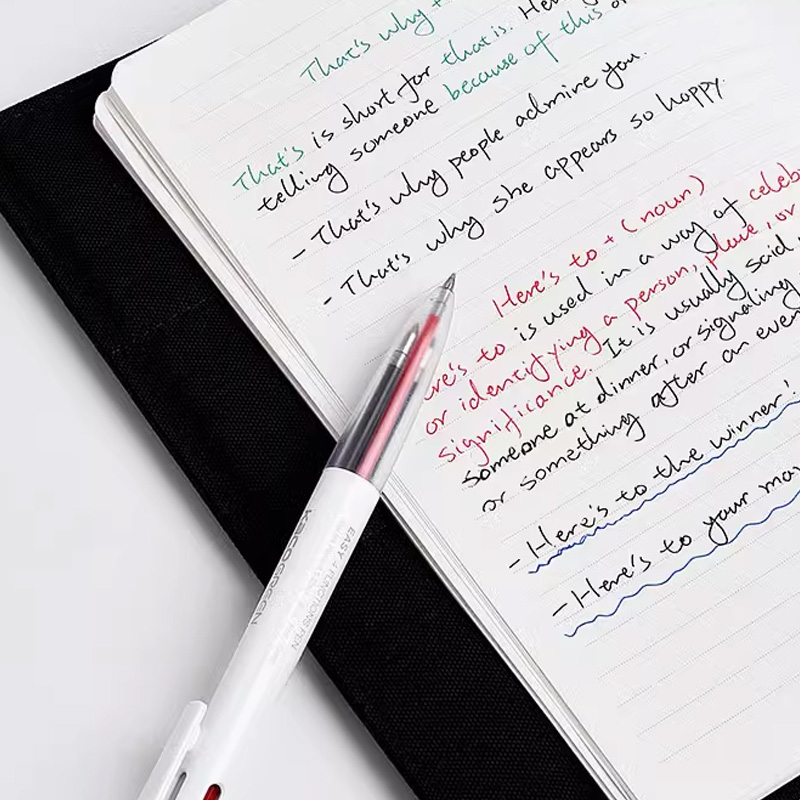 That's why +
That's is short for that is. Here
telling someone because of this or
- That's why people admire you.
- That's why she appears so happy.
Here's to + (noun)
ere's to is used in a way of celeb
or identifying a person, place, or
significance. It is usually said
someone at dinner, or signaling
or something after an even
- Here's to the winner!
- Here's to your mar
KACOGREEN
EASY 4 FUNCTIONS PEN